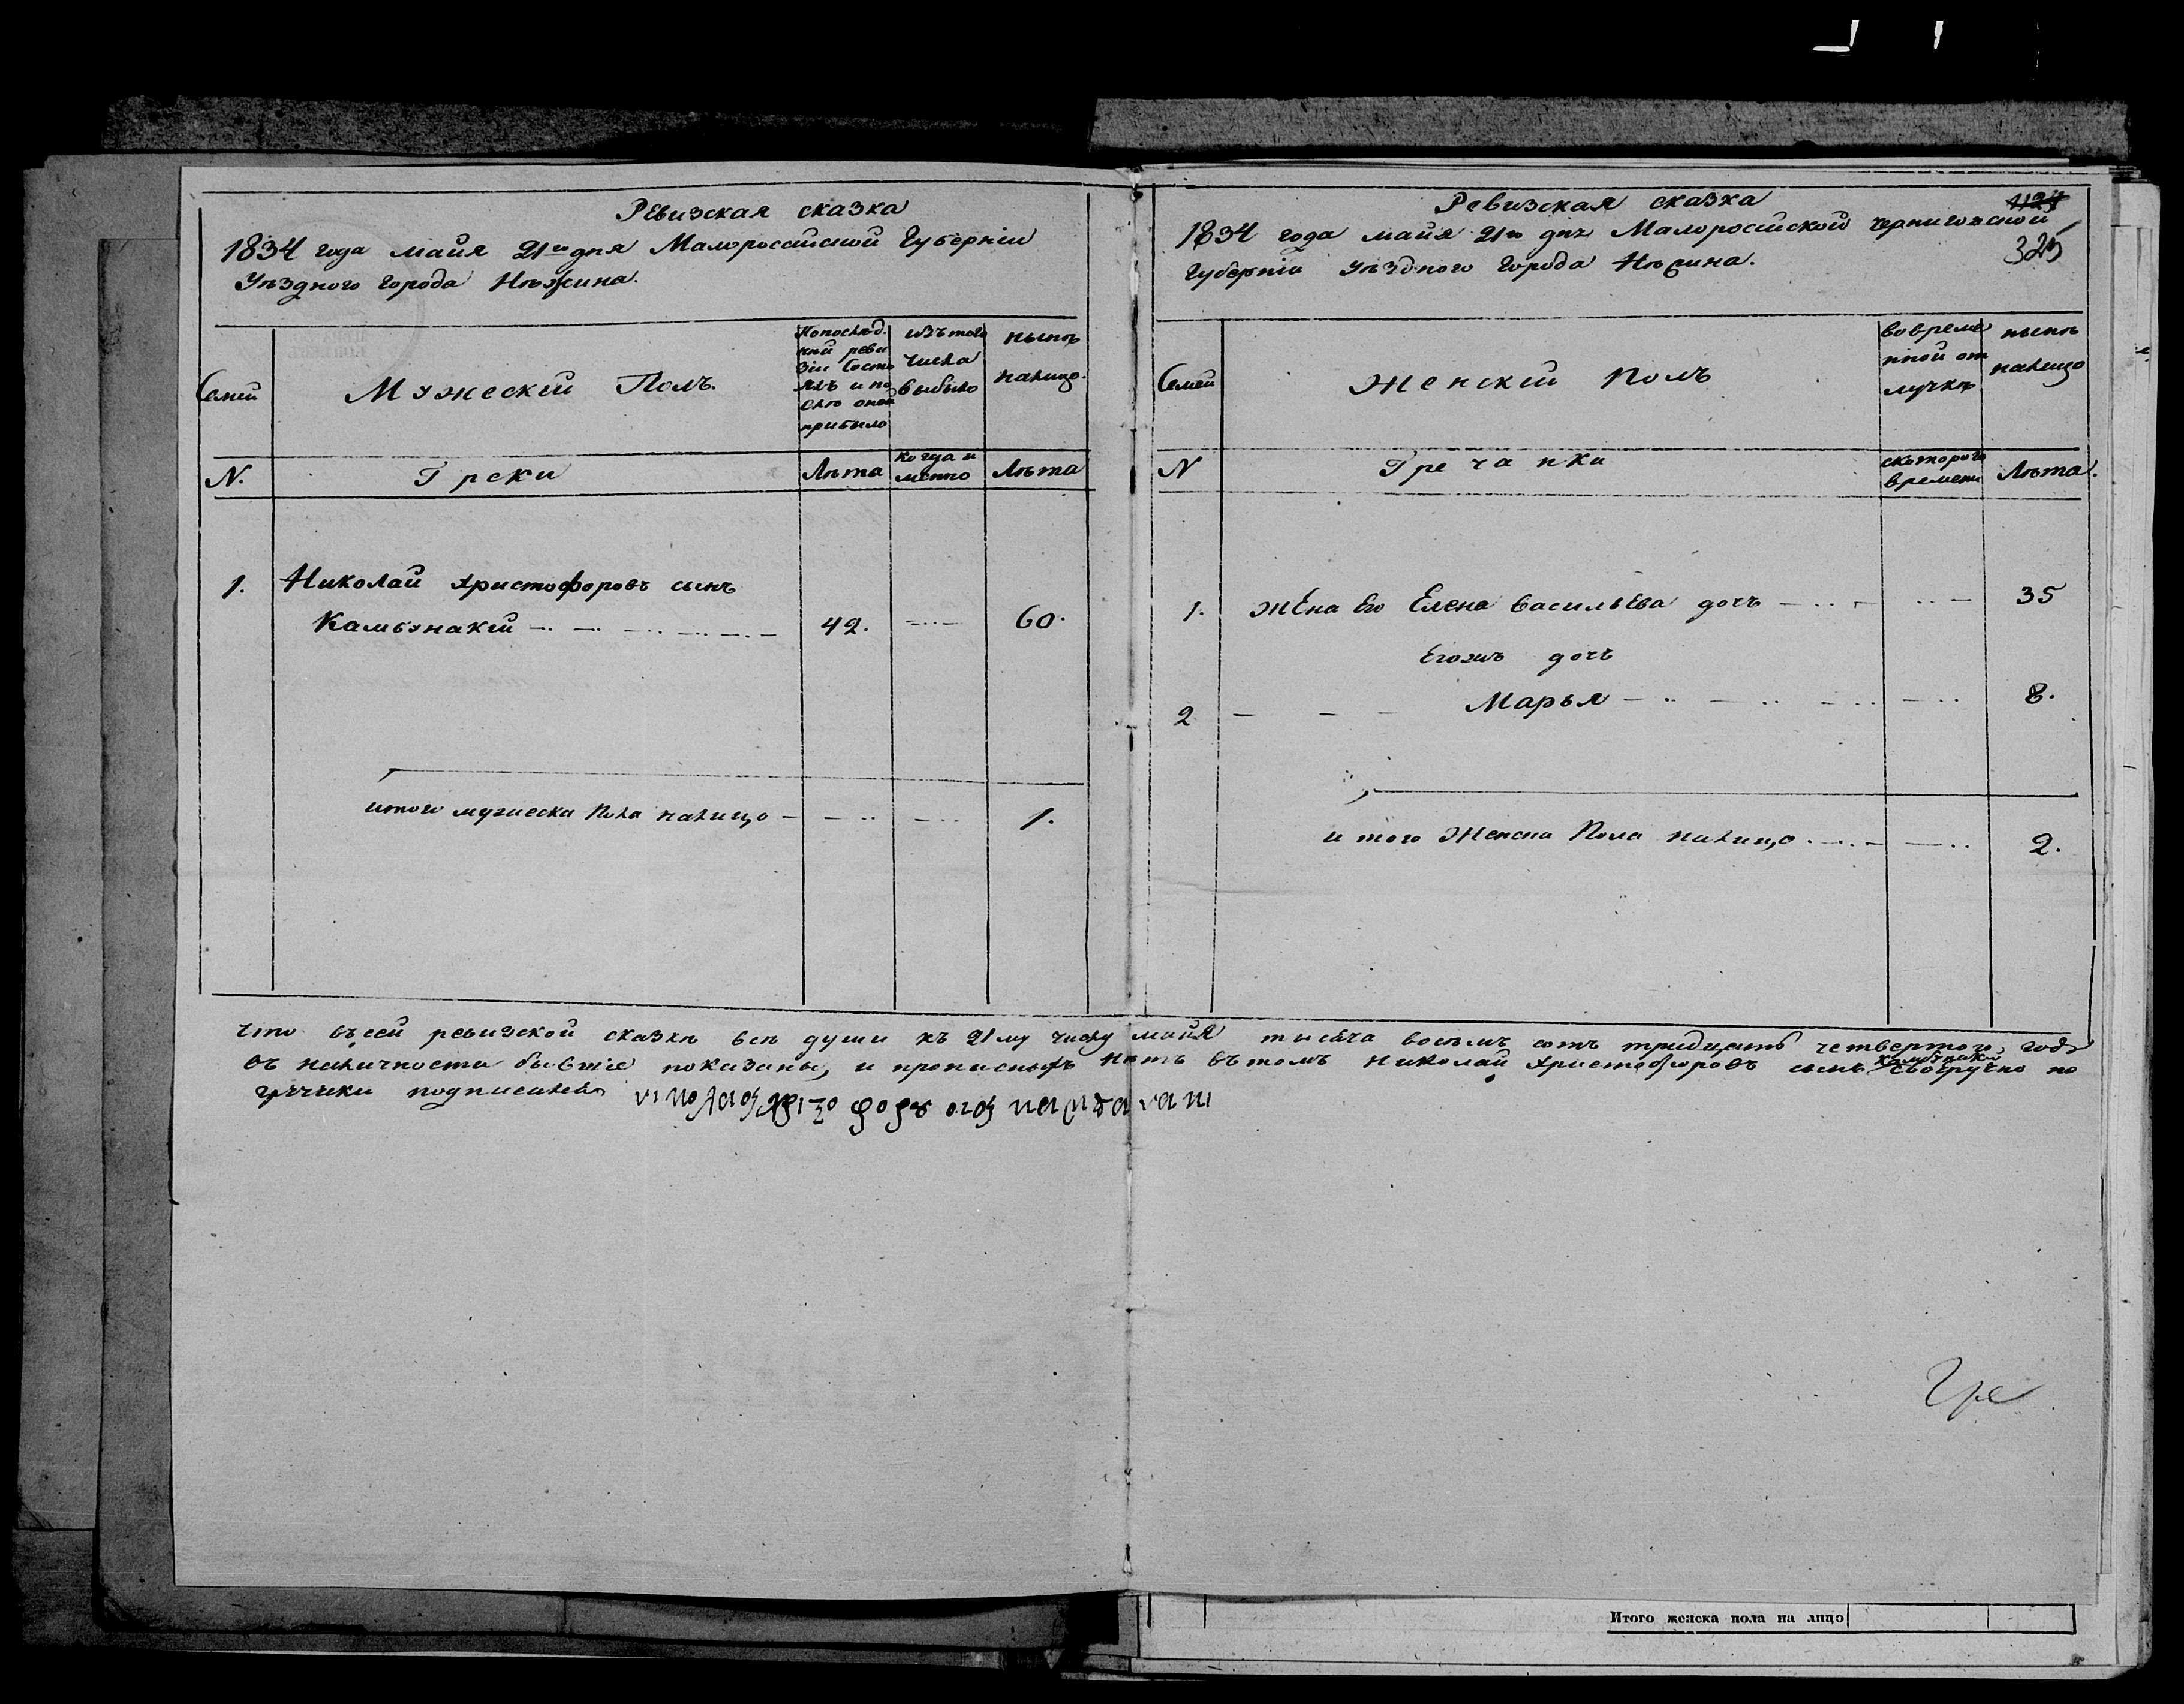 Ревизская сказка
1834 года майя 21го дня Малоросийской Губерніи
Уѣздного города Нѣжина.
Семей
Мужескій Полъ.
Попослѣд.
ней реви
зіи состо
ялъ и по
слѣ оной
прибыло
изъ того
числа
выбыло
нынѣ
налицо.
N.
Греки
Лѣта
когда и
менно
Лѣта
1. Николай Христофоровъ сынъ
Камбунакій 42. 60.
итого мужеска пола налицо 1.
Ревизская сказка
1124
1834 года майя 21го дня Малоросійской Черниговской
325
Губерніи уѣздного города Нѣжина.
Семей
Женскій Полъ
вовреме
нной от
лучкѣ
нынѣ
налицо
N
Гречанки
скоторого
времени
Лѣта.
1. Жена Его Елена Васильева дочь 35
Егожъ дочь
2 Марья 8.
и того Женска Пола налицо 2.
что въсей ревизской сказкѣ всѣ души къ 21му числу майя тысяча восемъ сотъ тридцать четвертого года
въ наличности бывшіе показаны, и прописныхъ нѣтъ вътомъ Николай Христофоровъ сынъ Камбунакій своеручно по
гречики подписался
Гре
Итого женска пола на лицо